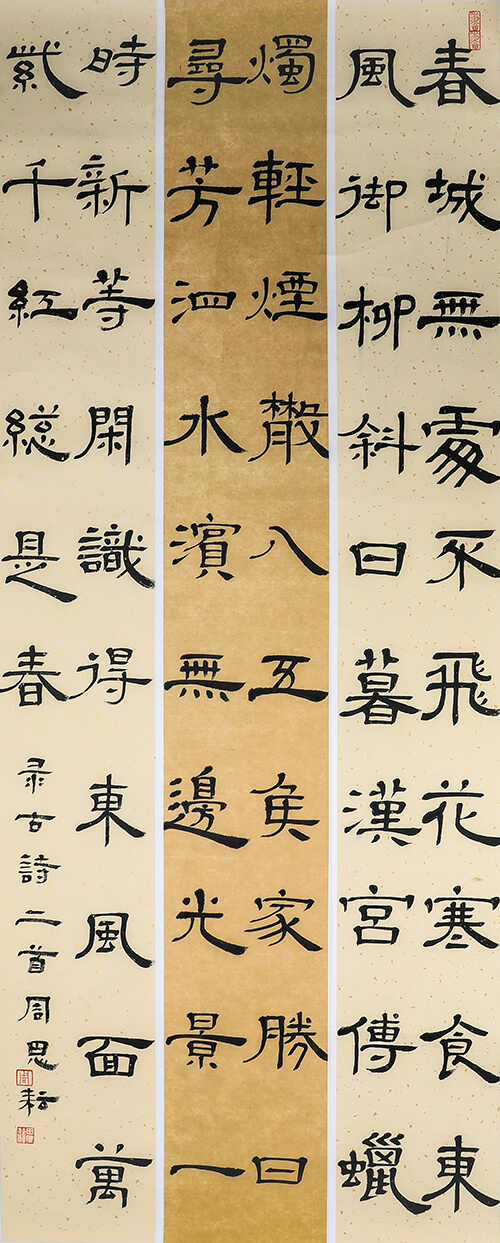 春城無處不飛花寒食東
風御柳斜日暮漢宮傳蠟
燭輕煙散入五侯家勝日
尋芳泗水濱無邊光景一
時新等閑識得東風面萬
紫千紅總是春
录古詩二首周思耘